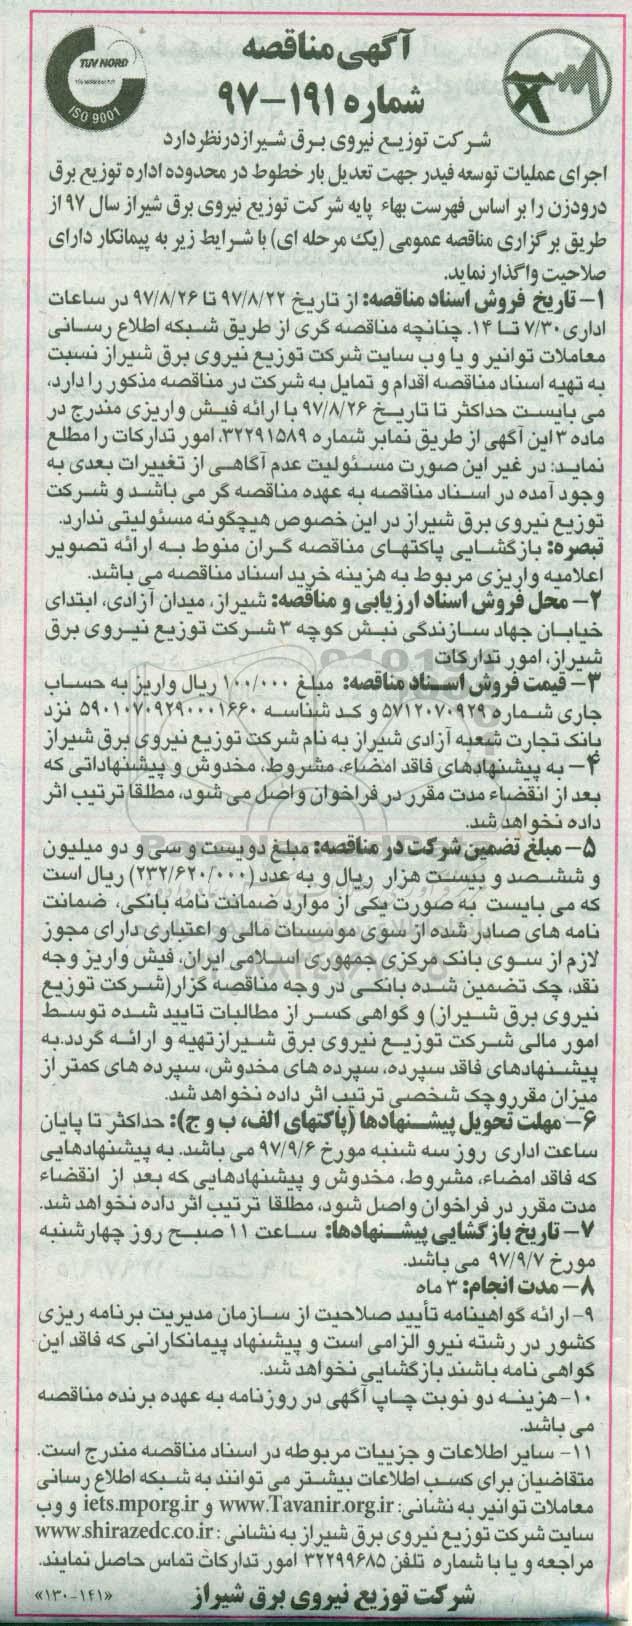 آگهی مناقصه
شماره ۱۹۱-۹۷
TUV NORD
ISO 9001
شرکت توزیع نیروی برق شیراز درنظر دارد
اجرای عملیات توسعه فیدر جهت تعدیل بار خطوط در محدوده اداره توزیع برق
درودزن را بر اساس فهرست بهاء پایه شرکت توزیع نیروی برق شیراز سال ۹۷ از
طریق برگزاری مناقصه عمومی (یک مرحله ای) با شرایط زیر به پیمانکار دارای
صلاحیت واگذار نماید.
۱- تاریخ فروش اسناد مناقصه: از تاریخ ۹۷/۸/۲۲ تا ۹۷/۸/۲۶ در ساعات
اداری ۷/۳۰ تا ۱۴. چنانچه مناقصه گری از طریق شبکه اطلاع رسانی
معاملات توانیر و یا وب سایت شرکت توزیع نیروی برق شیراز نسبت
به تهیه اسناد مناقصه اقدام و تمایل به شرکت در مناقصه مذکور را دارد،
می بایست حداکثر تا تاریخ ۹۷/۸/۲۶ با ارائه فیش واریزی مندرج در
ماده ۳ این آگهی از طریق نمابر شماره ۳۲۲۹۱۵۸۹، امور تدارکات را مطلع
نماید: در غیر این صورت مسئولیت عدم آگاهی از تغییرات بعدی به
وجود آمده در اسناد مناقصه به عهده مناقصه گر می باشد و شرکت
توزیع نیروی برق شیراز در این خصوص هیچگونه مسئولیتی ندارد.
تبصره: بازگشایی پاکتهای مناقصه گران منوط به ارائه تصویر
اعلامیه واریزی مربوط به هزینه خرید اسناد مناقصه می باشد.
۲- محل فروش اسناد ارزیابی و مناقصه: شیراز، میدان آزادی، ابتدای
خیابان جهاد سازندگی نبش کوچه ۳ شرکت توزیع نیروی برق
شیراز، امور تدارکات
۳- قیمت فروش اسناد مناقصه: مبلغ ۱۰۰/۰۰۰ ریال واریز به حساب
جاری شماره ۵۷۱۲۰۷۰۹۲۹ و کد شناسه ۵۹۰۱۰۷۰۹۲۹۰۰۰۱۶۶۰ نزد
بانک تجارت شعبه آزادی شیراز به نام شرکت توزیع نیروی برق شیراز
۴- به پیشنهادهای فاقد امضاء، مشروط، مخدوش و پیشنهاداتی که
بعد از انقضاء مدت مقرر در فراخوان واصل می شود، مطلقا ترتیب اثر
داده نخواهد شد.
۵- مبلغ تضمین شرکت در مناقصه: مبلغ دویست و سی و دو میلیون
و ششصد و بیست هزار ریال و به عدد (۲۳۲/۶۲۰/۰۰۰) ریال است
که می بایست به صورت یکی از موارد ضمانت نامه بانکی، ضمانت
نامه های صادر شده از سوی موسسات مالی و اعتباری دارای مجوز
لازم از سوی بانک مرکزی جمهوری اسلامی ایران، فیش واریز وجه
نقد، چک تضمین شده بانکی در وجه مناقصه گزار(شرکت توزیع
نیروی برق شیراز) و گواهی کسر از مطالبات تایید شده توسط
امور مالی شرکت توزیع نیروی برق شیراز تهیه و ارائه گردد. به
پیشنهادهای فاقد سپرده، سپرده های مخدوش، سپرده های کمتر از
میزان مقرر و چک شخصی ترتیب اثر داده نخواهد شد.
۶- مهلت تحویل پیشنهادها (پاکتهای الف، ب و ج): حداکثر تا پایان
ساعت اداری روز سه شنبه مورخ ۹۷/۹/۶ می باشد. به پیشنهادهایی
که فاقد امضاء، مشروط، مخدوش و پیشنهادهایی که بعد از انقضاء
مدت مقرر در فراخوان واصل شود، مطلقا ترتیب اثر داده نخواهد شد.
۷- تاریخ بازگشایی پیشنهادها: ساعت ۱۱ صبح روز چهارشنبه
مورخ ۹۷/۹/۷ می باشد.
۸- مدت انجام: ۳ ماه
۹- ارائه گواهینامه تأیید صلاحیت از سازمان مدیریت برنامه ریزی
کشور در رشته نیرو الزامی است و پیشنهاد پیمانکارانی که فاقد این
گواهی نامه باشند بازگشایی نخواهد شد.
۱۰- هزینه دو نوبت چاپ آگهی در روزنامه به عهده برنده مناقصه
می باشد.
۱۱- سایر اطلاعات و جزییات مربوطه در اسناد مناقصه مندرج است.
متقاضیان برای کسب اطلاعات بیشتر می توانند به شبکه اطلاع رسانی
معاملات توانیر به نشانی: www.Tavanir.org.ir و iets.mporg.ir و وب
سایت شرکت توزیع نیروی برق شیراز به نشانی: www.shirazedc.co.ir
مراجعه و یا با شماره تلفن ۳۲۲۹۹۶۸۵ امور تدارکات تماس حاصل نمایند.
شرکت توزیع نیروی برق شیراز
«۱۴۱-۱۳۰»